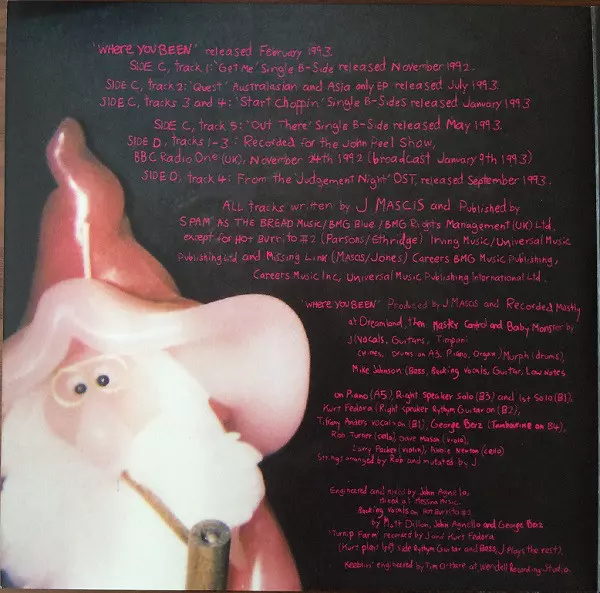 'WHERE YOU BEEN' released February 1993.
SIDE C, track 1: 'Get Me' Single B-Side released November 1992.
SIDE C, track 2: 'Quest' Australasian and Asia only EP released July 1993.
SIDE C, tracks 3 and 4: 'Start Choppin' Single B-Sides released January 1993
SIDE C, track 5: 'Out There' Single B-Side released May 1993.
SIDE D, tracks 1-3: Recorded for the John Peel Show,
BBC Radio One (UK), November 24th 1992 (broadcast January 9th 1993)
SIDE D, track 4: From the 'Judgement Night' OST, released September 1993.
ALL tracks written by J MASCIS and Published by
SPAM AS THE BREAD Music/BMG Blue/BMG Rights Management (UK) Ltd.
except for Hot Burrito #2 (Parsons/Ethridge) Irving Music/Universal Music
Publishing Ltd and Missing Link (Mascis/Jones) Careers BMG Music Publishing,
Careers Music Inc, Universal Music Publishing International Ltd.
'WHERE YOU BEEN' Produced by J MASCIS and Recorded Mostly
at Dreamland, then Master Control and Baby Monster by
J (Vocals, Guitars, Timpani
Chimes, Drums on A3, Piano, Organ) Murph (drums),
Mike Johnson (Bass, Backing vocals, Guitar, Low Notes
on Piano (A5), Right speaker Solo (B3) and 1st Solo (B1).
Kurt Fedora (Right Speaker Rythym Guitar on (B2),
Tiffany Anders vocals on (B1), George Berz (Tambourine on B4).
Rob Turner (cello), Dave Mason (viola),
Larry Packer (violin), Abbie Newton (cello)
Strings arranged by Rob and mutated by J.
Engineered and mixed by John Agnello.
Mixed at Messina Music.
Backing vocals on Hot Burrito #2
by Matt Dillon, John Agnello and George Berz
'Turnip Farm' recorded by J and Kurt Fedora
(Kurt plays left side Rythym Guitar and Bass, J Plays the rest).
'Keeblin' engineered by Tim O'Heir at Wendall Recording Studio.